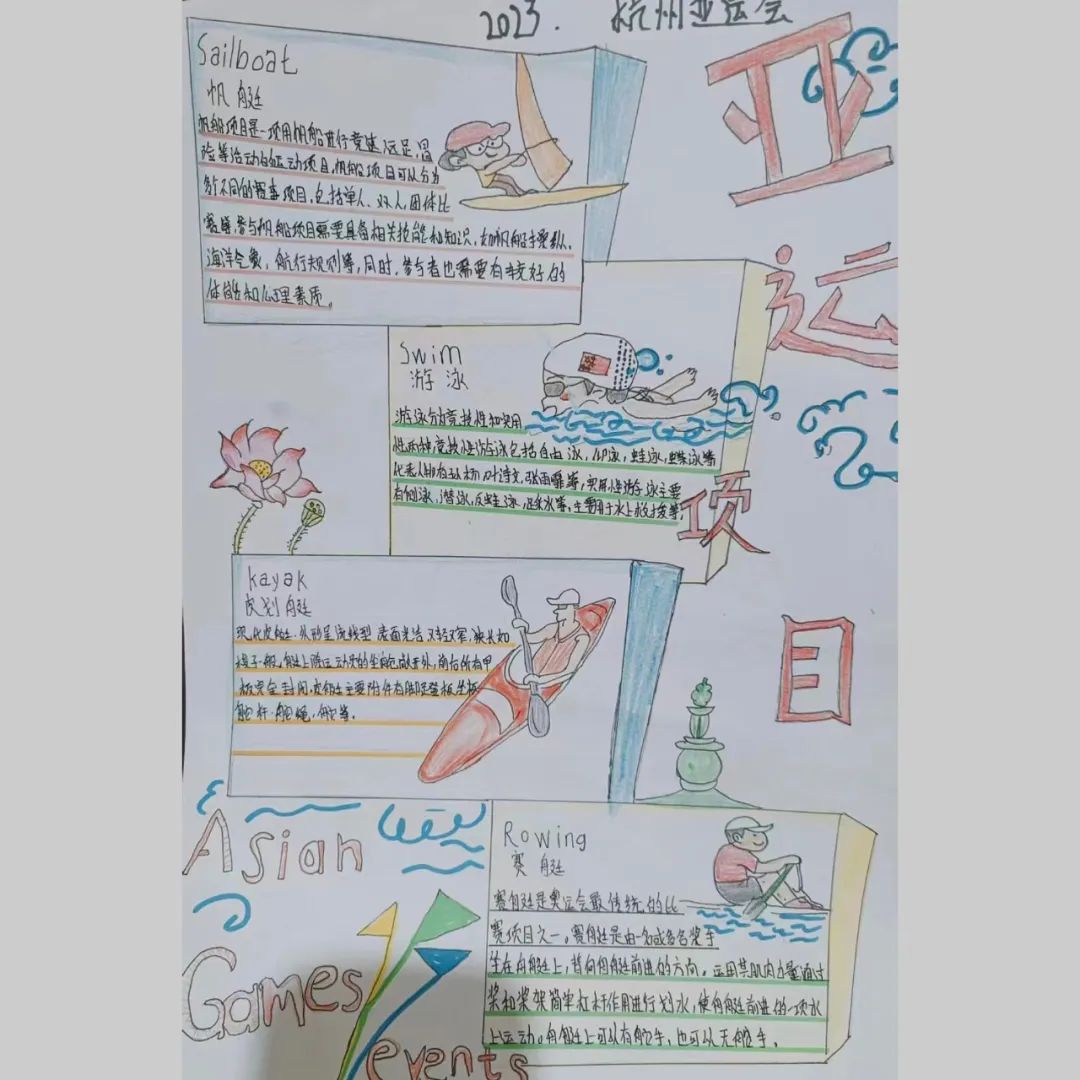 2023. 杭州亚运会
亚
运
项
目
Sailboat
帆艇
帆船项目是一项用帆船进行竞速、远足、冒
险等活动的运动项目,帆船项目可以分为
多个不同的赛事项目,包括单人、双人、团体比
赛等,参与帆船项目需要具备相关技能和知识,如帆船操纵、
海洋气象、航行规则等,同时,参与者也需要有良好的
体能和心理素质。
Swim
游泳
游泳分为竞技性和实用
性两种竞技性游泳包括自由泳,仰泳,蛙泳,蝶泳等
代表人物有孙杨,叶诗文,张雨霏等,实用性游泳主要
有侧泳,潜泳,反蛙泳,踩水等,主要用于水上救援等
kayak
皮划艇
现代皮艇外形呈流线型 表面光洁 又轻又窄,狭长如
梭子一般,艇上除运动员的坐舱敞开外,前后所有甲
板完全封闭,皮艇主要附件有脚蹬板坐板
舵杆、舵绳,舵等。
Rowing
赛艇
赛艇是奥运会最传统的比
赛项目之一。赛艇是由一名或多名桨手
坐在舟艇上,背向舟艇前进的方向。运用其肌肉力量通过
桨和桨架简单杠杆作用进行划水,使舟艇前进的一项水
上运动。舟艇上可以有舵手,也可以无舵手。
Asian
Games
events